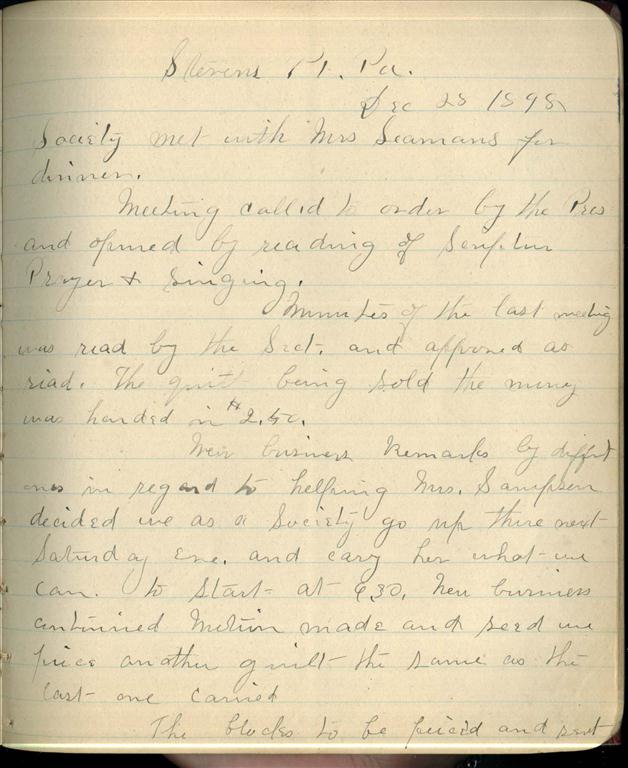 Stevens Pt. Pa.
Dec 28 1898
Society met with Mrs Seamans for
dinner.
Meeting called to order by the Pres
and opened by reading of Scriptur
Prayer & Singing.
Minutes of the last meeting
was read by the Sect. and approved as
read. The quilt being sold the money
was handed in $2.50.
New business Remarks by diffrt
ones in regard to helping Mrs. Sampson
decided we as a Society go up there next
Saturday Eve. and cary her what we
can. to start at 6,30, New business
continued Motion made and seed we
piece another quilt the same as the
last one carried
The blocks to be pieced and sent